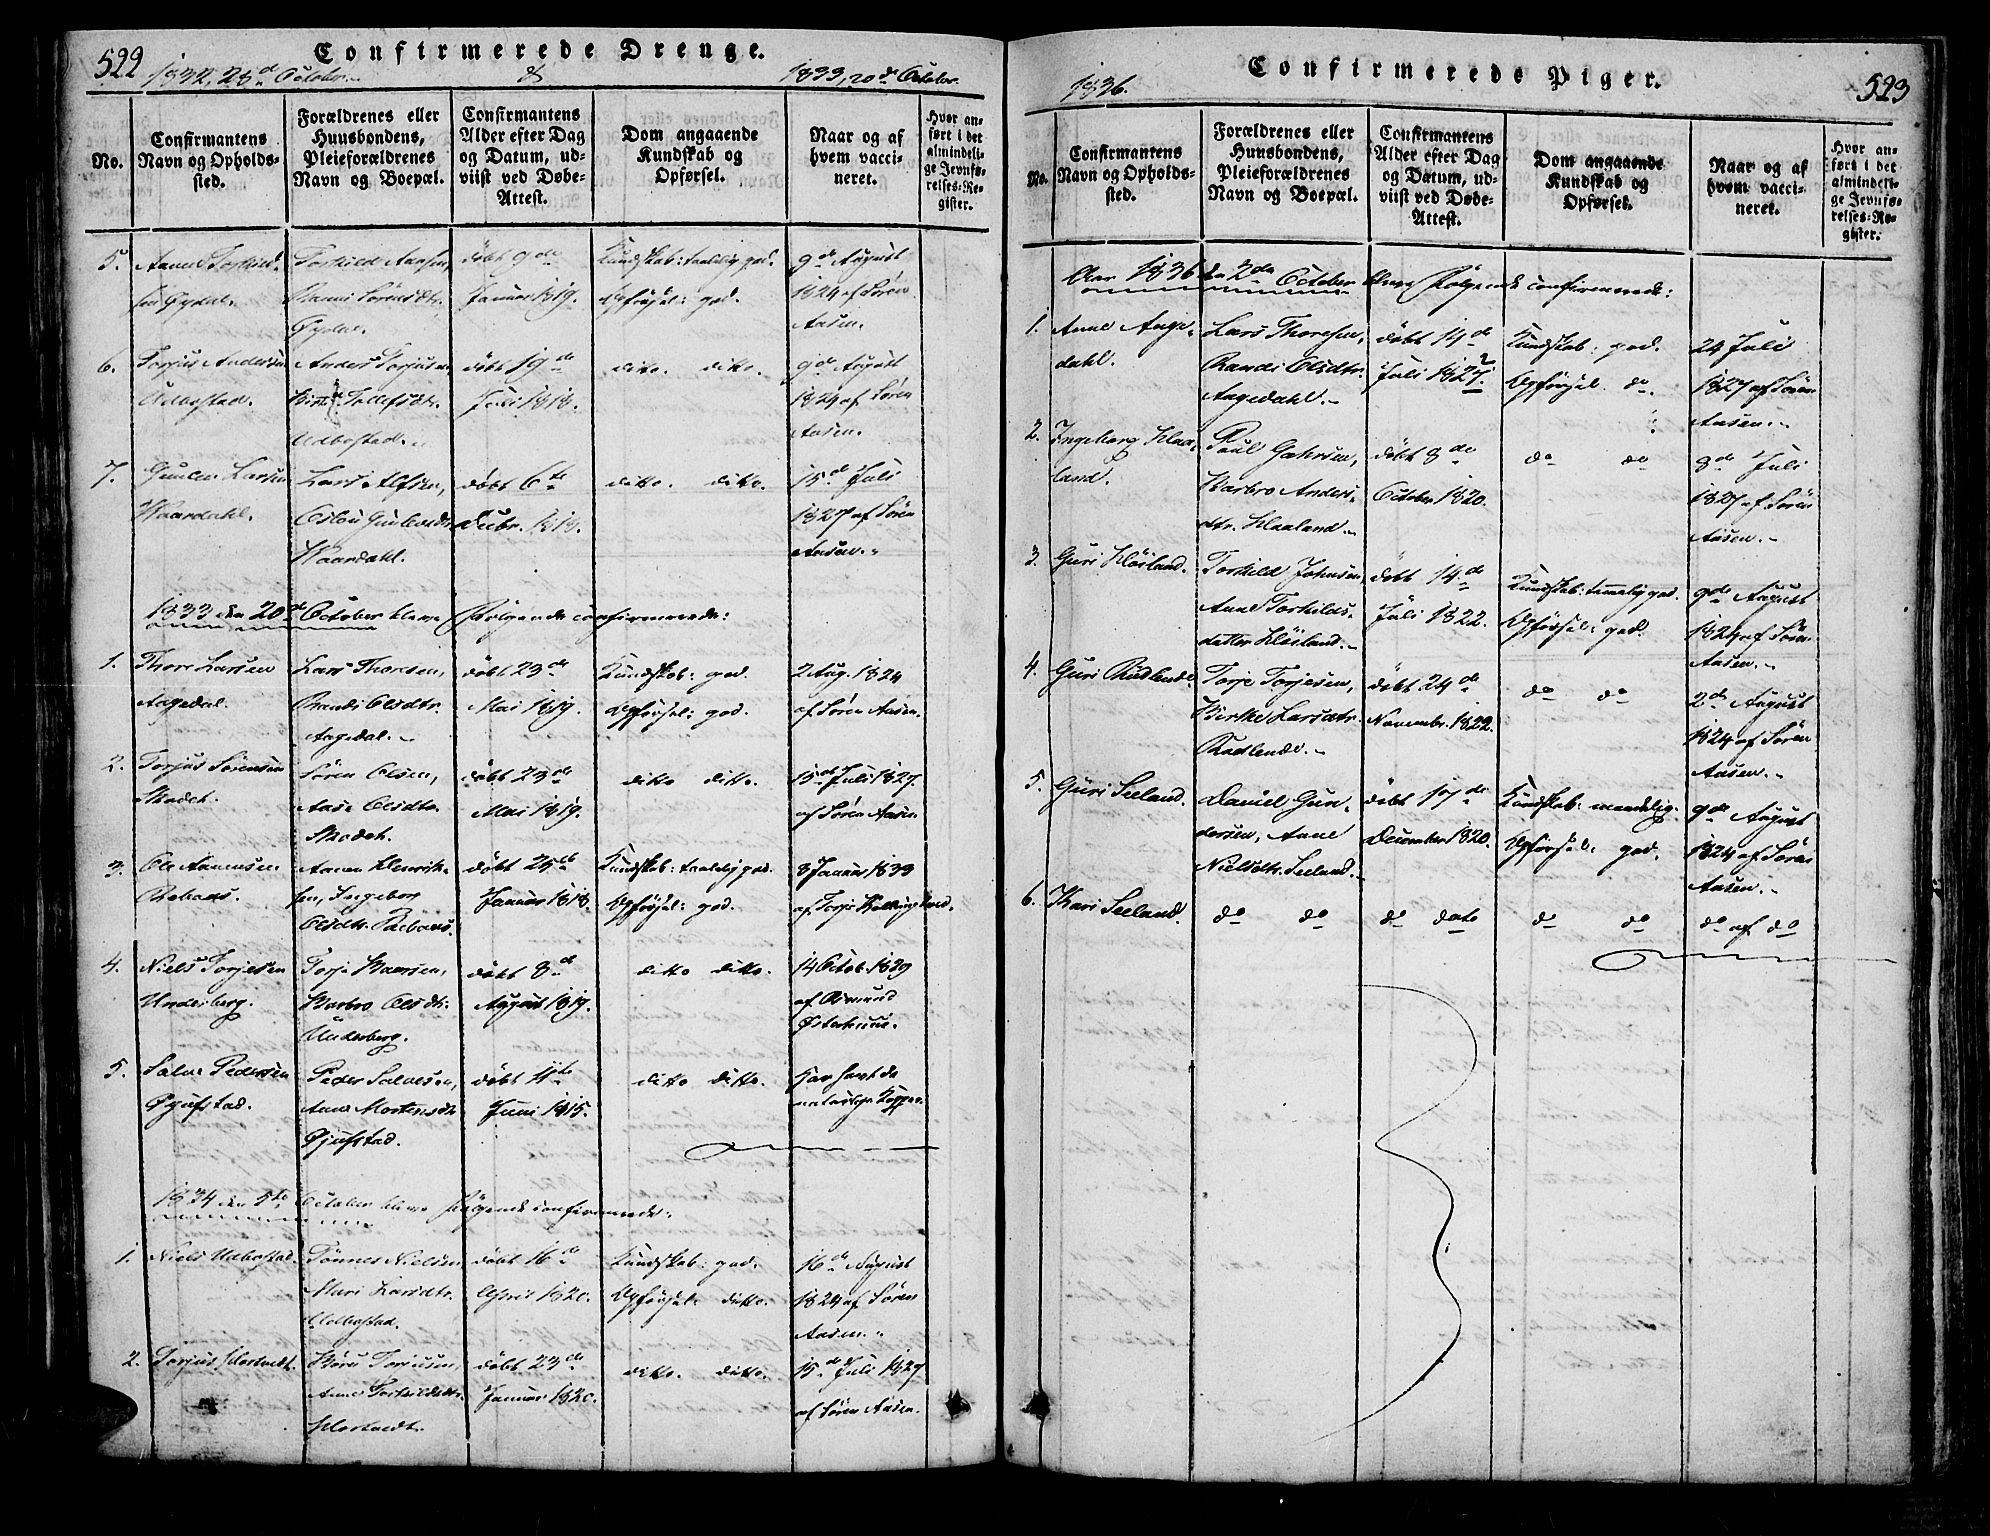 522
Confirmerede Drenge.
1832, 28de October
&
1833, 20de October
No.
Confirmantens Navn og Opholds-sted.
Forældrenes eller Huusbondens, Pleieforældrenes Navn og Boepæl.
Confirmantens Alder efter Dag og Datum, ud-viist ved Døbe-Attest.
Dom angaaende Kundskab og Opførsel.
Naar og af hvem vacci-neret.
Hvor an-ført i det almindeli-ge Jevnfø-relses-Re-gister.
5.
sen Øydal.
Torkild Aansen,
Sörensdtr.
Øydal.
döbt 9de
Januar 1819.
Kundskab: taalelig god.
Opförsel: god.
9de August
1824 af Sören
Aasen.
6.
Torjus Andersen
Udbostad.
Anders Torjusen
Tollefsdtr.
Udbostad.
döbt 19de
Juli 1818.
ditto. ditto.
9de August
1824 af Sören
Aasen.
7.
Gunlev Larsen
Waardahl.
Lars Alfsen,
Oslou Gunlevsdtr
Waardahl.
döbt 6te
Decbr. 1818.
ditto. ditto.
15de Juli
1827 af Sören
Aasen.
1833 den 20de October bleve Følgende confirmerede:
1.
Thore Larsen
Aagedal.
Lars Thoresen,
Randi Olsdtr.
Aagedal.
döbt 23de
Mai 1819.
Kundskab: god.
Opförsel: god.
2 Aug. 1824
af Sören Aasen.
2.
Torjus Sörensen
Sören Olsen,
Aase Olsdtr.
döbt 23de
Mai 1819.
ditto ditto.
15de Juli 1827.
af Sören Aasen
3.
Ole Aanensen
Aanen Henrik-
sen, Ingebor
Olsdtr.
döbt 25de
Januar 1818.
Kundskab: taalelig god.
Opförsel: god.
8 Januar 1833
af Torje
4.
Niels Torjesen
Underberg.
Torje
Barbro Olsdtr.
Underberg.
döbt 8de
August 1819.
ditto ditto.
14 Octob. 1829
af Asmund
5.
Salve Pedersen
Øjufstad.
Peder Salvesen,
Anne Mortensdtr
Øjufstad.
döbt 11te
Juni 1815.
ditto ditto.
har havt de
naturlige Kopper.
1834 den 5te October bleve Følgende confirmerede:
1.
Niels Udbostad.
Tönnes Nielsen
Mari Larsdtr.
Udbostad.
döbt 16de
April 1820.
Kundskab: god.
Opförsel: ditto.
16de August
1824 af Sören
Aasen.
2.
Torjus
Torjusen,
Anne Torkildsdtr.
döbt 23de
Januar 1820.
ditto. ditto.
15de Juli 1827
af Sören Aasen.
1836.
Confirmerede Piger.
523
No.
Confirmantens Navn og Opholds-sted.
Forældrenes eller Huusbondens, Pleieforældrenes Navn og Boepæl.
Confirmantens Alder efter Dag og Datum, ud-viist ved Døbe-Attest.
Dom angaaende Kundskab og Opførsel.
Naar og af hvem vacci-neret.
Hvor an-ført i det almindeli-ge Jevnfø-relses-Re-gister.
Aar 1836 den 2den October bleve Følgende confirmerede:
1.
Anne Aage-
dahl.
Lars Thoresen,
Randi Olsdtr.
Aagedahl.
döbt 14de
Juli 1822.
Kundskab: god.
Opförsel. do.
24 Juli
1827 af Sören
Aasen.
2.
Ingeborg Haa-
land.
Poul
Barbro Anders-
dtr. Haaland.
döbt 8de
October 1820.
do do
8de Juli
1827 af Sören
Aasen.
3.
Guri Höiland.
Torkild Johnsen,
Anne Torkilds-
datter Höiland.
döbt 14de
Juli 1822.
Kundskab: temmelig god.
Opförsel: god.
9de August
1824 af Sören
Aasen.
4.
Guri
Torje Torjesen,
Birthe Larsdtr.
döbt 24de
Novembr. 1822.
do do
2de August
1824 af Sören
Aasen.
5.
Guri Seeland.
Daniel Gun-
dersen, Anne
Nielsdtr. Seeland.
döbt 17de
December 1820.
Kundskab: maadelig.
Opförsel: god.
9de August
1824 af Sören
Aasen.
6.
Kari Seeland.
do do
do dato
do do
do af do